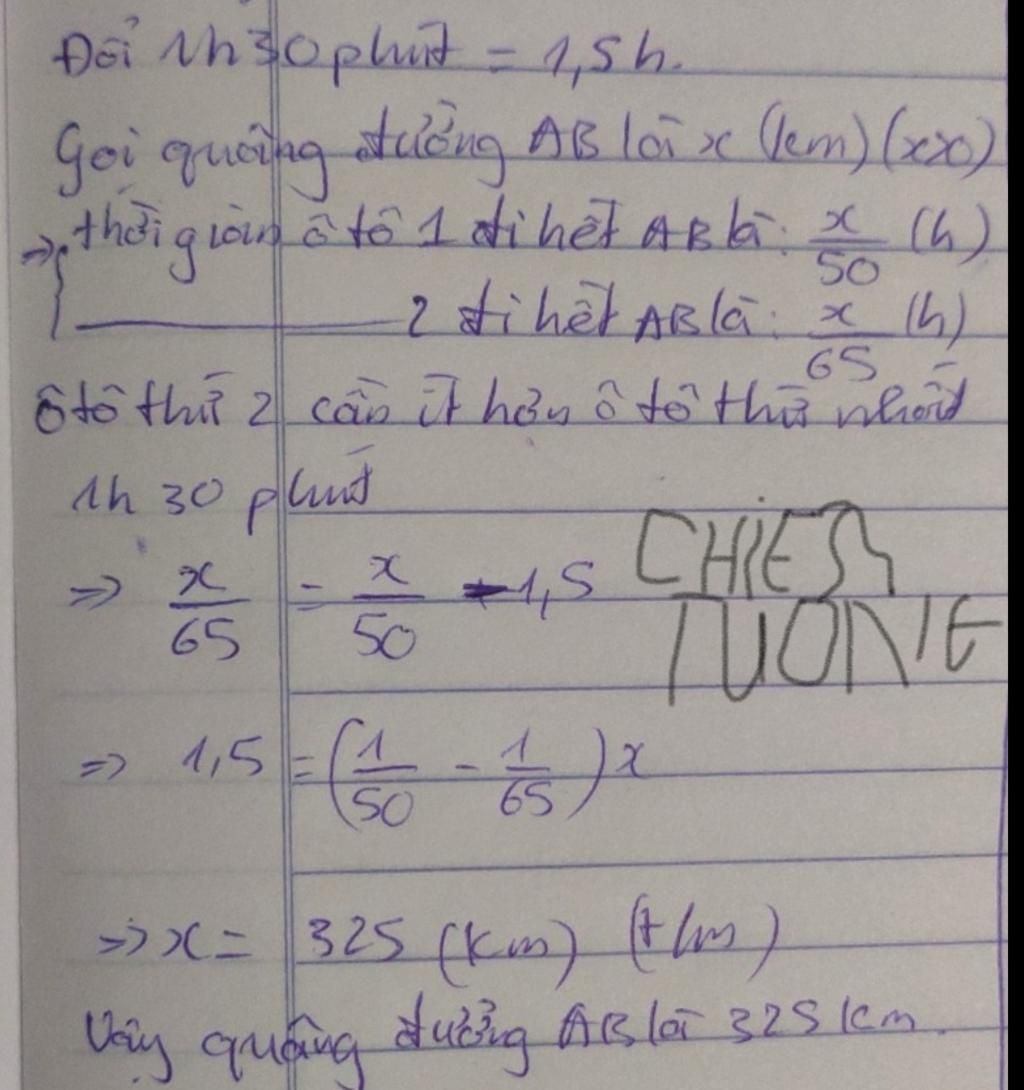 Đổi 1h30phút = 1,5h.
Gọi quãng đường AB là x (km) (x>0)
=> { thời gian ô tô 1 đi hết AB là: x/50 (h)
2 đi hết AB là: x/65 (h)
ô tô thứ 2 cần ít hơn ô tô thứ nhất
1h 30 phút
=> x/65 = x/50 - 1,5
CHIEN
TUONG
=> 1,5 = (1/50 - 1/65)x
=> x = 325 (km) (t/m)
Vậy quãng đường AB là 325 km.